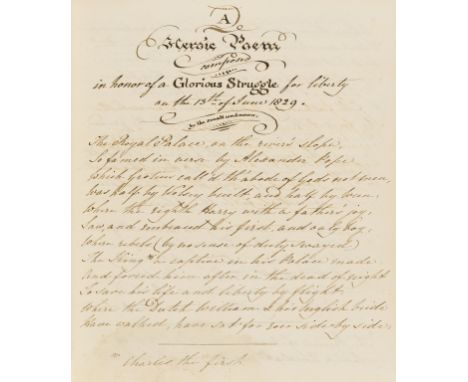 A
Heroic Poem
composed
in honor of a Glorious Struggle for liberty
on the 13th of June 1829.
by the
The Royal Palace, on the river's slope,
So famed in verse by Alexander Pope
Which Grotius call'd th' abode of Gods not men,
Was half by Wolsey built and half by Wren,
Where the eighth Harry with a father's joy,
Saw, and embraced his first, and only boy,
Where rebels (by no sense of duty swayed)
The King* a captive in his Palace made
And forced him often in the dead of night
To save his life and liberty by flight
Where the Dutch William & his English bride
Have walked, have sat for side by side,
* Charles the first